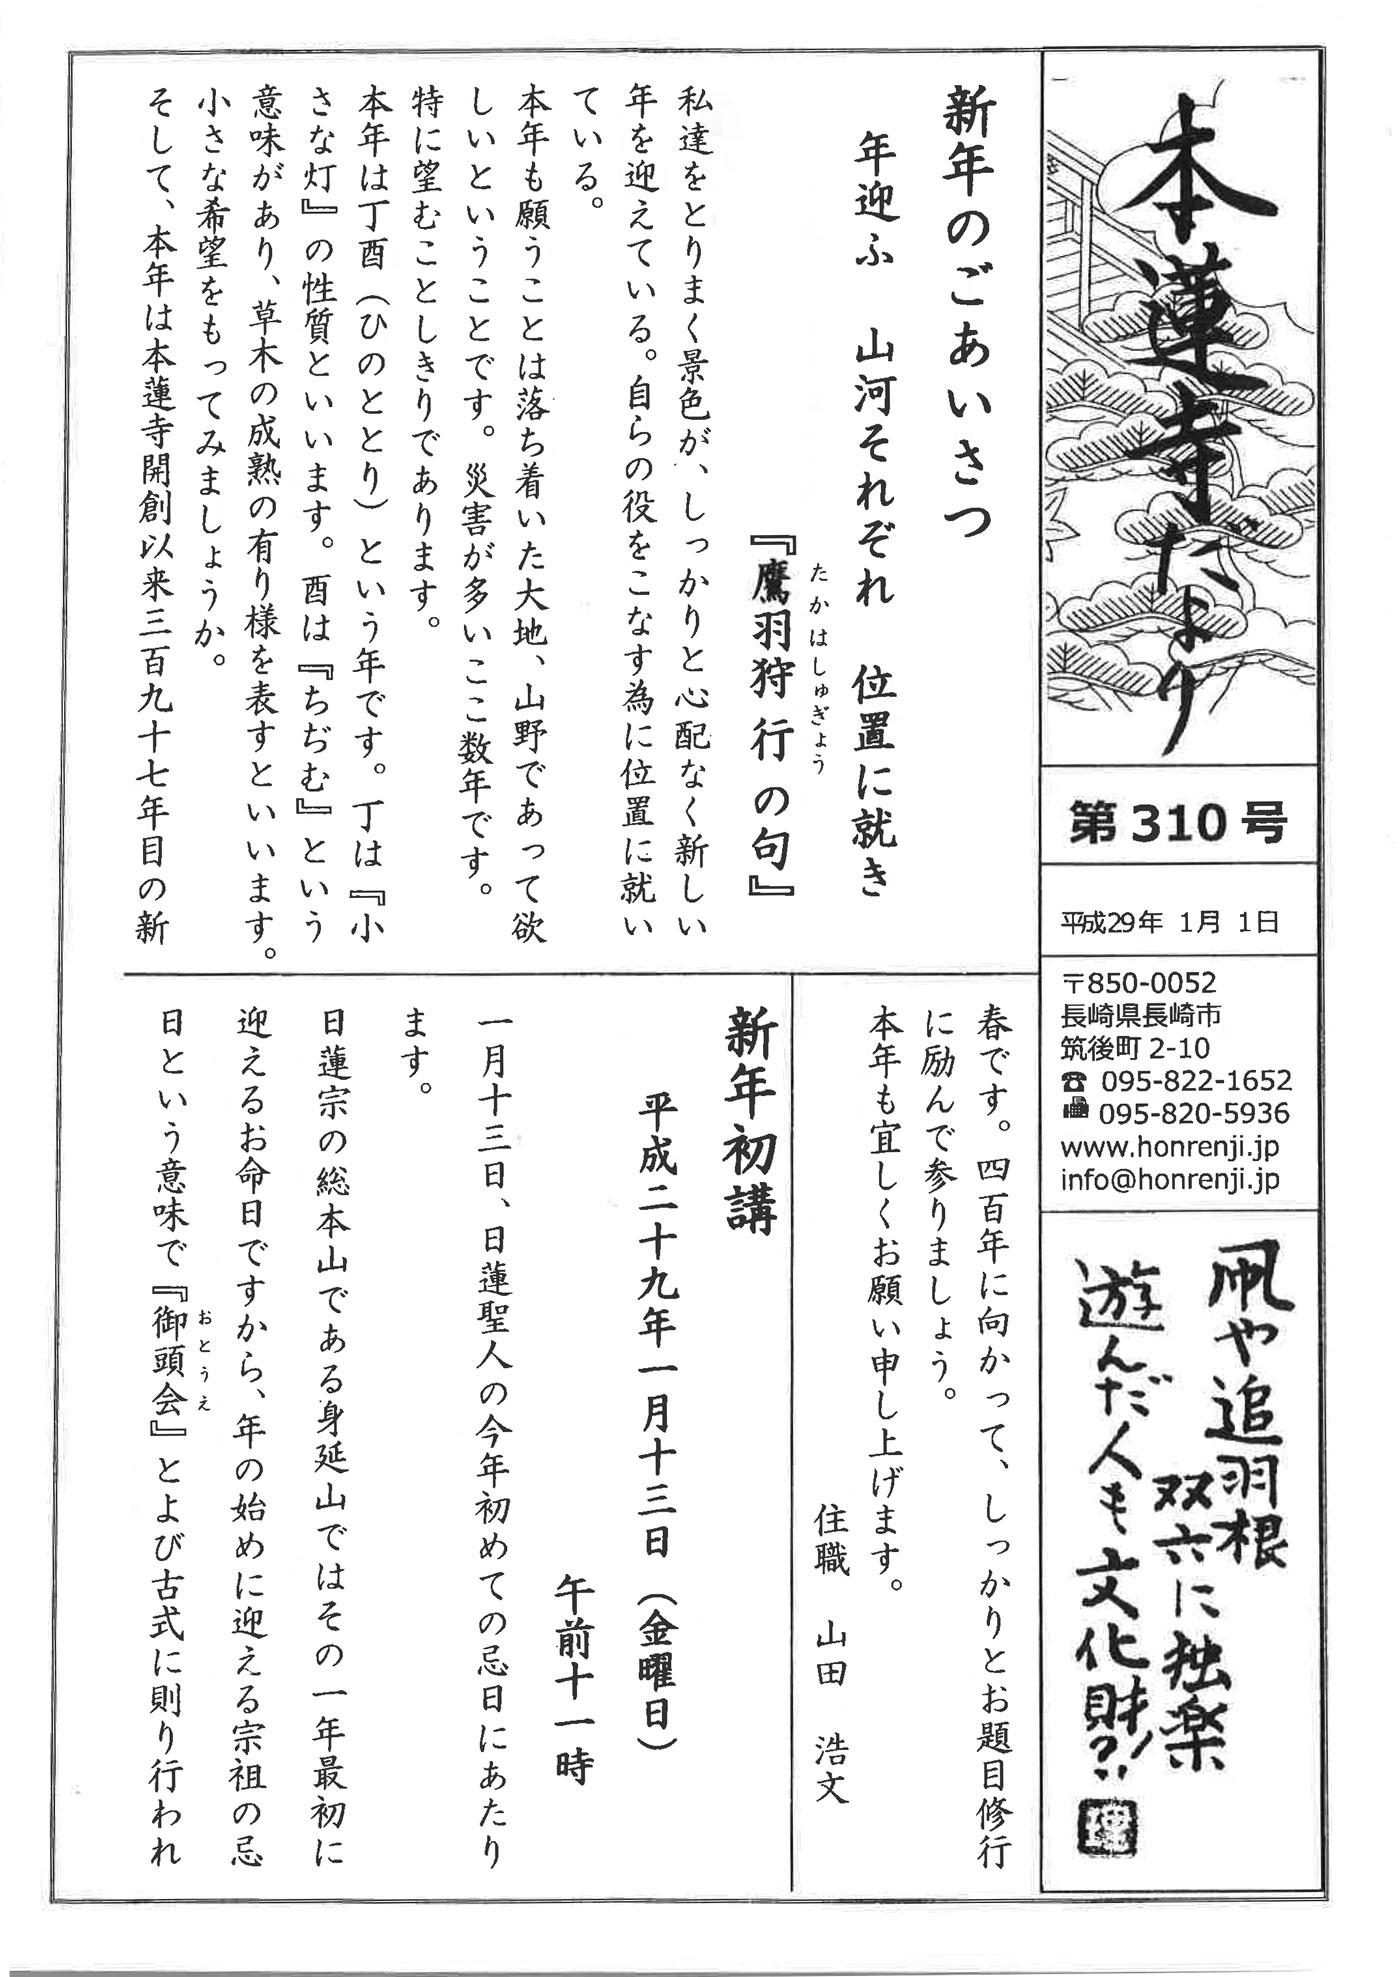 本蓮寺だより
第310号
平成29年 1月 1日
〒850-0052
長崎県長崎市
筑後町2-10
☎ 095-822-1652
📠 095-820-5936
www.honrenji.jp
info@honrenji.jp
凧や追羽根
双六に独楽
遊んだ人も文化財?!
新年のごあいさつ
年迎ふ 山河それぞれ 位置に就き
たかはしゅぎょう
『鷹羽狩行の句』
私達をとりまく景色が、しっかりと心配なく新しい
年を迎えている。自らの役をこなす為に位置に就い
ている。
本年も願うことは落ち着いた大地、山野であって欲
しいということです。災害が多いここ数年です。
特に望むことしきりであります。
本年は丁酉（ひのととり）という年です。丁は『小
さな灯』の性質といいます。酉は『ちぢむ』という
意味があり、草木の成熟の有り様を表すといいます。
小さな希望をもってみましょうか。
そして、本年は本蓮寺開創以来三百九十七年目の新
春です。四百年に向かって、しっかりとお題目修行
に励んで参りましょう。
本年も宜しくお願い申し上げます。
住職 山田 浩文
新年初講
平成二十九年一月十三日（金曜日）
午前十一時
一月十三日、日蓮聖人の今年初めての忌日にあたり
ます。
日蓮宗の総本山である身延山ではその一年最初に
迎えるお命日ですから、年の始めに迎える宗祖の忌
おとうえ
日という意味で『御頭会』とよび古式に則り行われ